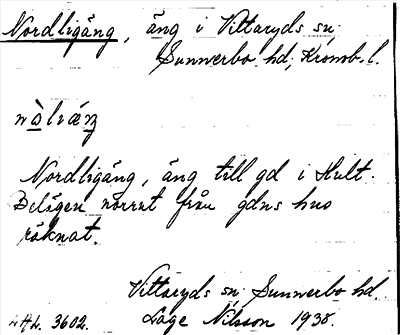 Nordligäng, äng i Vittaryds sn;
Sunnerbo hd; Kronob. l.
Nordligäng, äng till gd i Hult.
Belägen norrut från gdns hus
räknat.
Vittaryds sn; Sunnerbo hd.
3602. Låge Nilsson 1938.